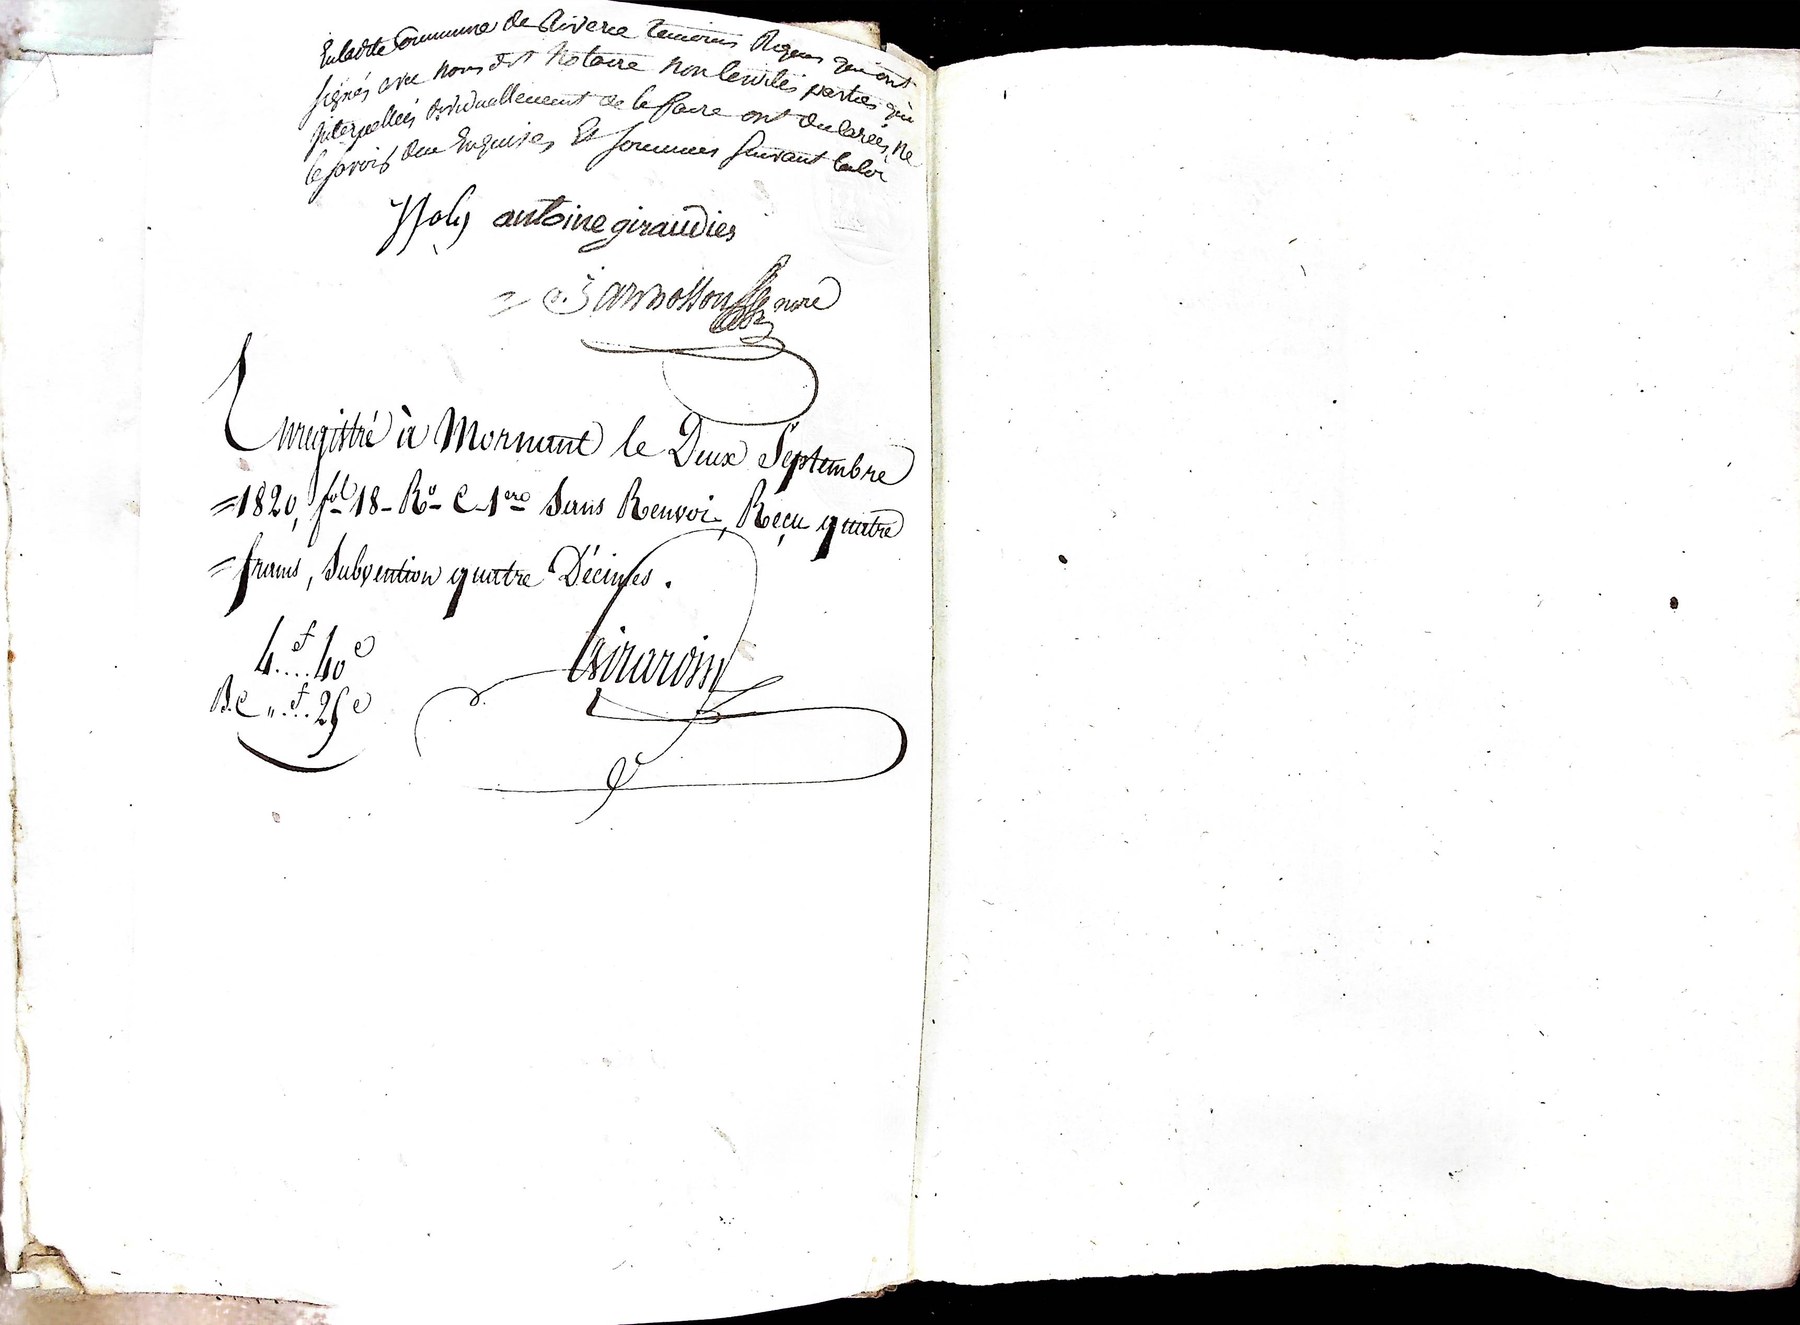 En ladite Commune de Riverie temoins Requis qui ont
signés avec nous dit Notaire non lesdites parties qui
interpellées individuellement de le faire ont declarées, ne
le savoir deu Enquises Et sommes suivant la loi
antoine giraudier
nore
Enregistré à Mornant le Deux Septembre
=1820, fol 18- Ro- C-1ere Sans Renvoi, Reçu quatre
=francs, Subvention quatre Décimes.
4..f..40c
B.C "..f..25c
Girardin